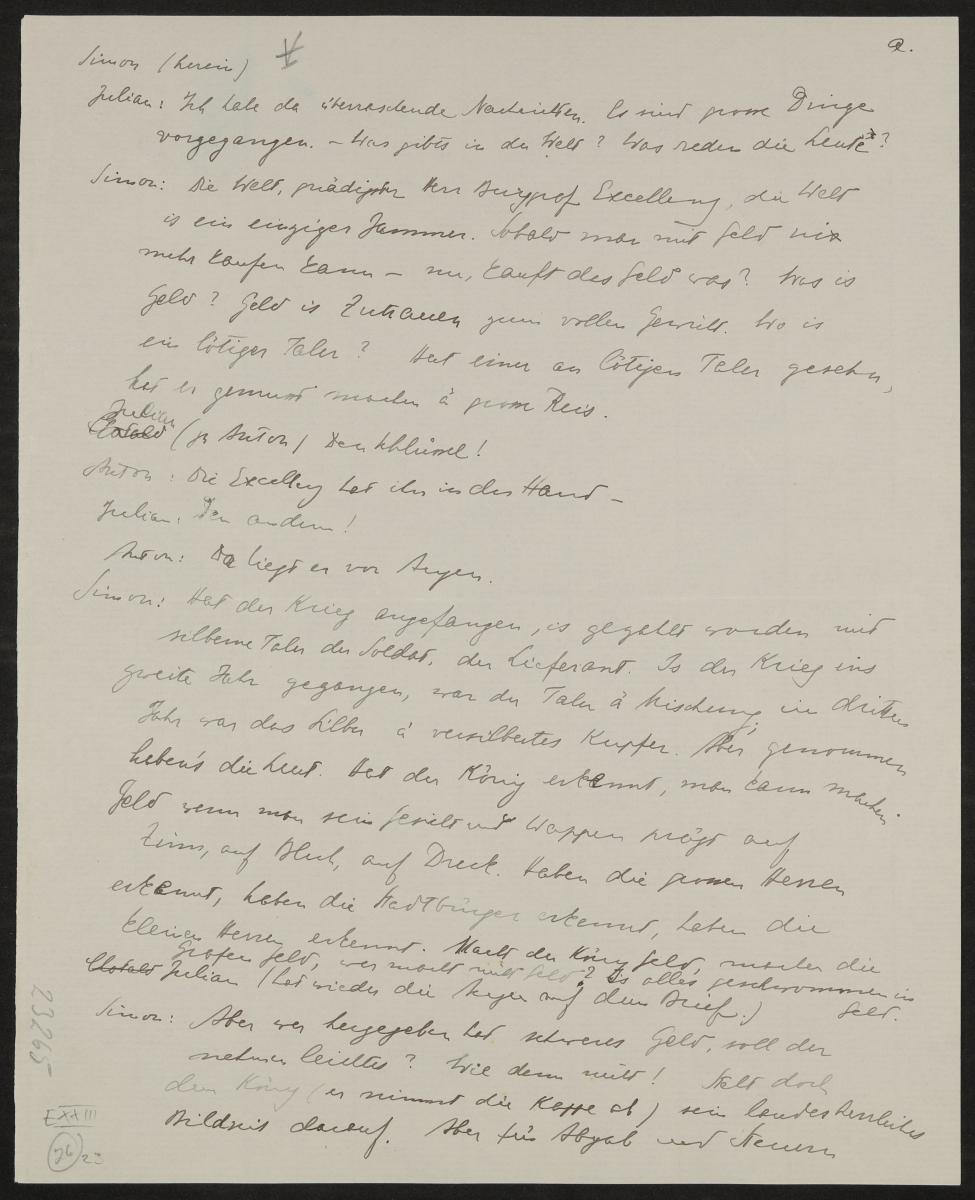 a.
Simon (herein)
Julian: Ich habe da überraschende Nachrichten. Es sind grosse Dinge
vorgegangen. – Was gibts in der Welt? Was reden die Leute?
Simon: Die Welt, gnädigster Herr Burggraf Excellenz, die Welt
is ein einziger Jammer. Sobald man mit Geld nix
mehr kaufen kann – nu, kauft das Geld was? Was is
Geld? Geld is Zutrauen zum vollen Gewicht. Wo is
ein lötiger Taler? Hat einer an lötigen Taler gesehn,
hat er gemusst machen à grosse Reis.
Julian (zu Anton) Den Schlüssel!
Anton: Die Excellenz hat ihn in der Hand –
Julian: Den andern!
Anton: Da liegt er vor Augen.
Simon: Hat der Krieg angefangen, is gezahlt worden mit
silberne Taler der Soldat, der Lieferant. Is der Krieg ins
zweite Jahr gegangen, war der Taler à Mischung, im dritten
Jahr war das Silber à versilbertes Kupfer. Aber genommen
haben's die Leut. Hat der König erkannt, man kann machen
Geld wenn man sein Gesicht und Wappen prägt auf
Zinn, auf Blech, auf Dreck. Haben die grossen Herren
erkannt, haben die Stadtbürger erkannt, haben die
kleinen Herren erkannt. Macht der König Geld, machen die
Grafen Geld, wer macht nicht Geld? Is alles geschwommen in
Geld.
Julian (hat wieder die Augen auf dem Brief.)
Simon: Aber wer hergegeben hat schweres Geld, soll der
nehmen leichtes? Wie denn nicht! Steht doch
dem König (er nimmt die Kappe ab) sein landesherrliches
Bildnis darauf. Aber für Abgab und Steuern
23265
E XXIII
76 23